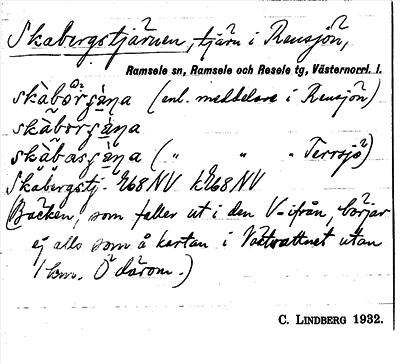 Skabergstjärnen, tjärn i Rensjön,
Ramsele sn, Ramsele och Resele tg, Västernorrl. l.
(enl. meddelare i Rensjön)
( " " " Terrsjö)
Skåbergstj. 268 NV k268 NV
(Bäcken, som faller ut i den V-ifrån, börjar
ej alls som å kartan i Västvattnet utan
1 km. Ö därom.)
C. LINDBERG 1932.